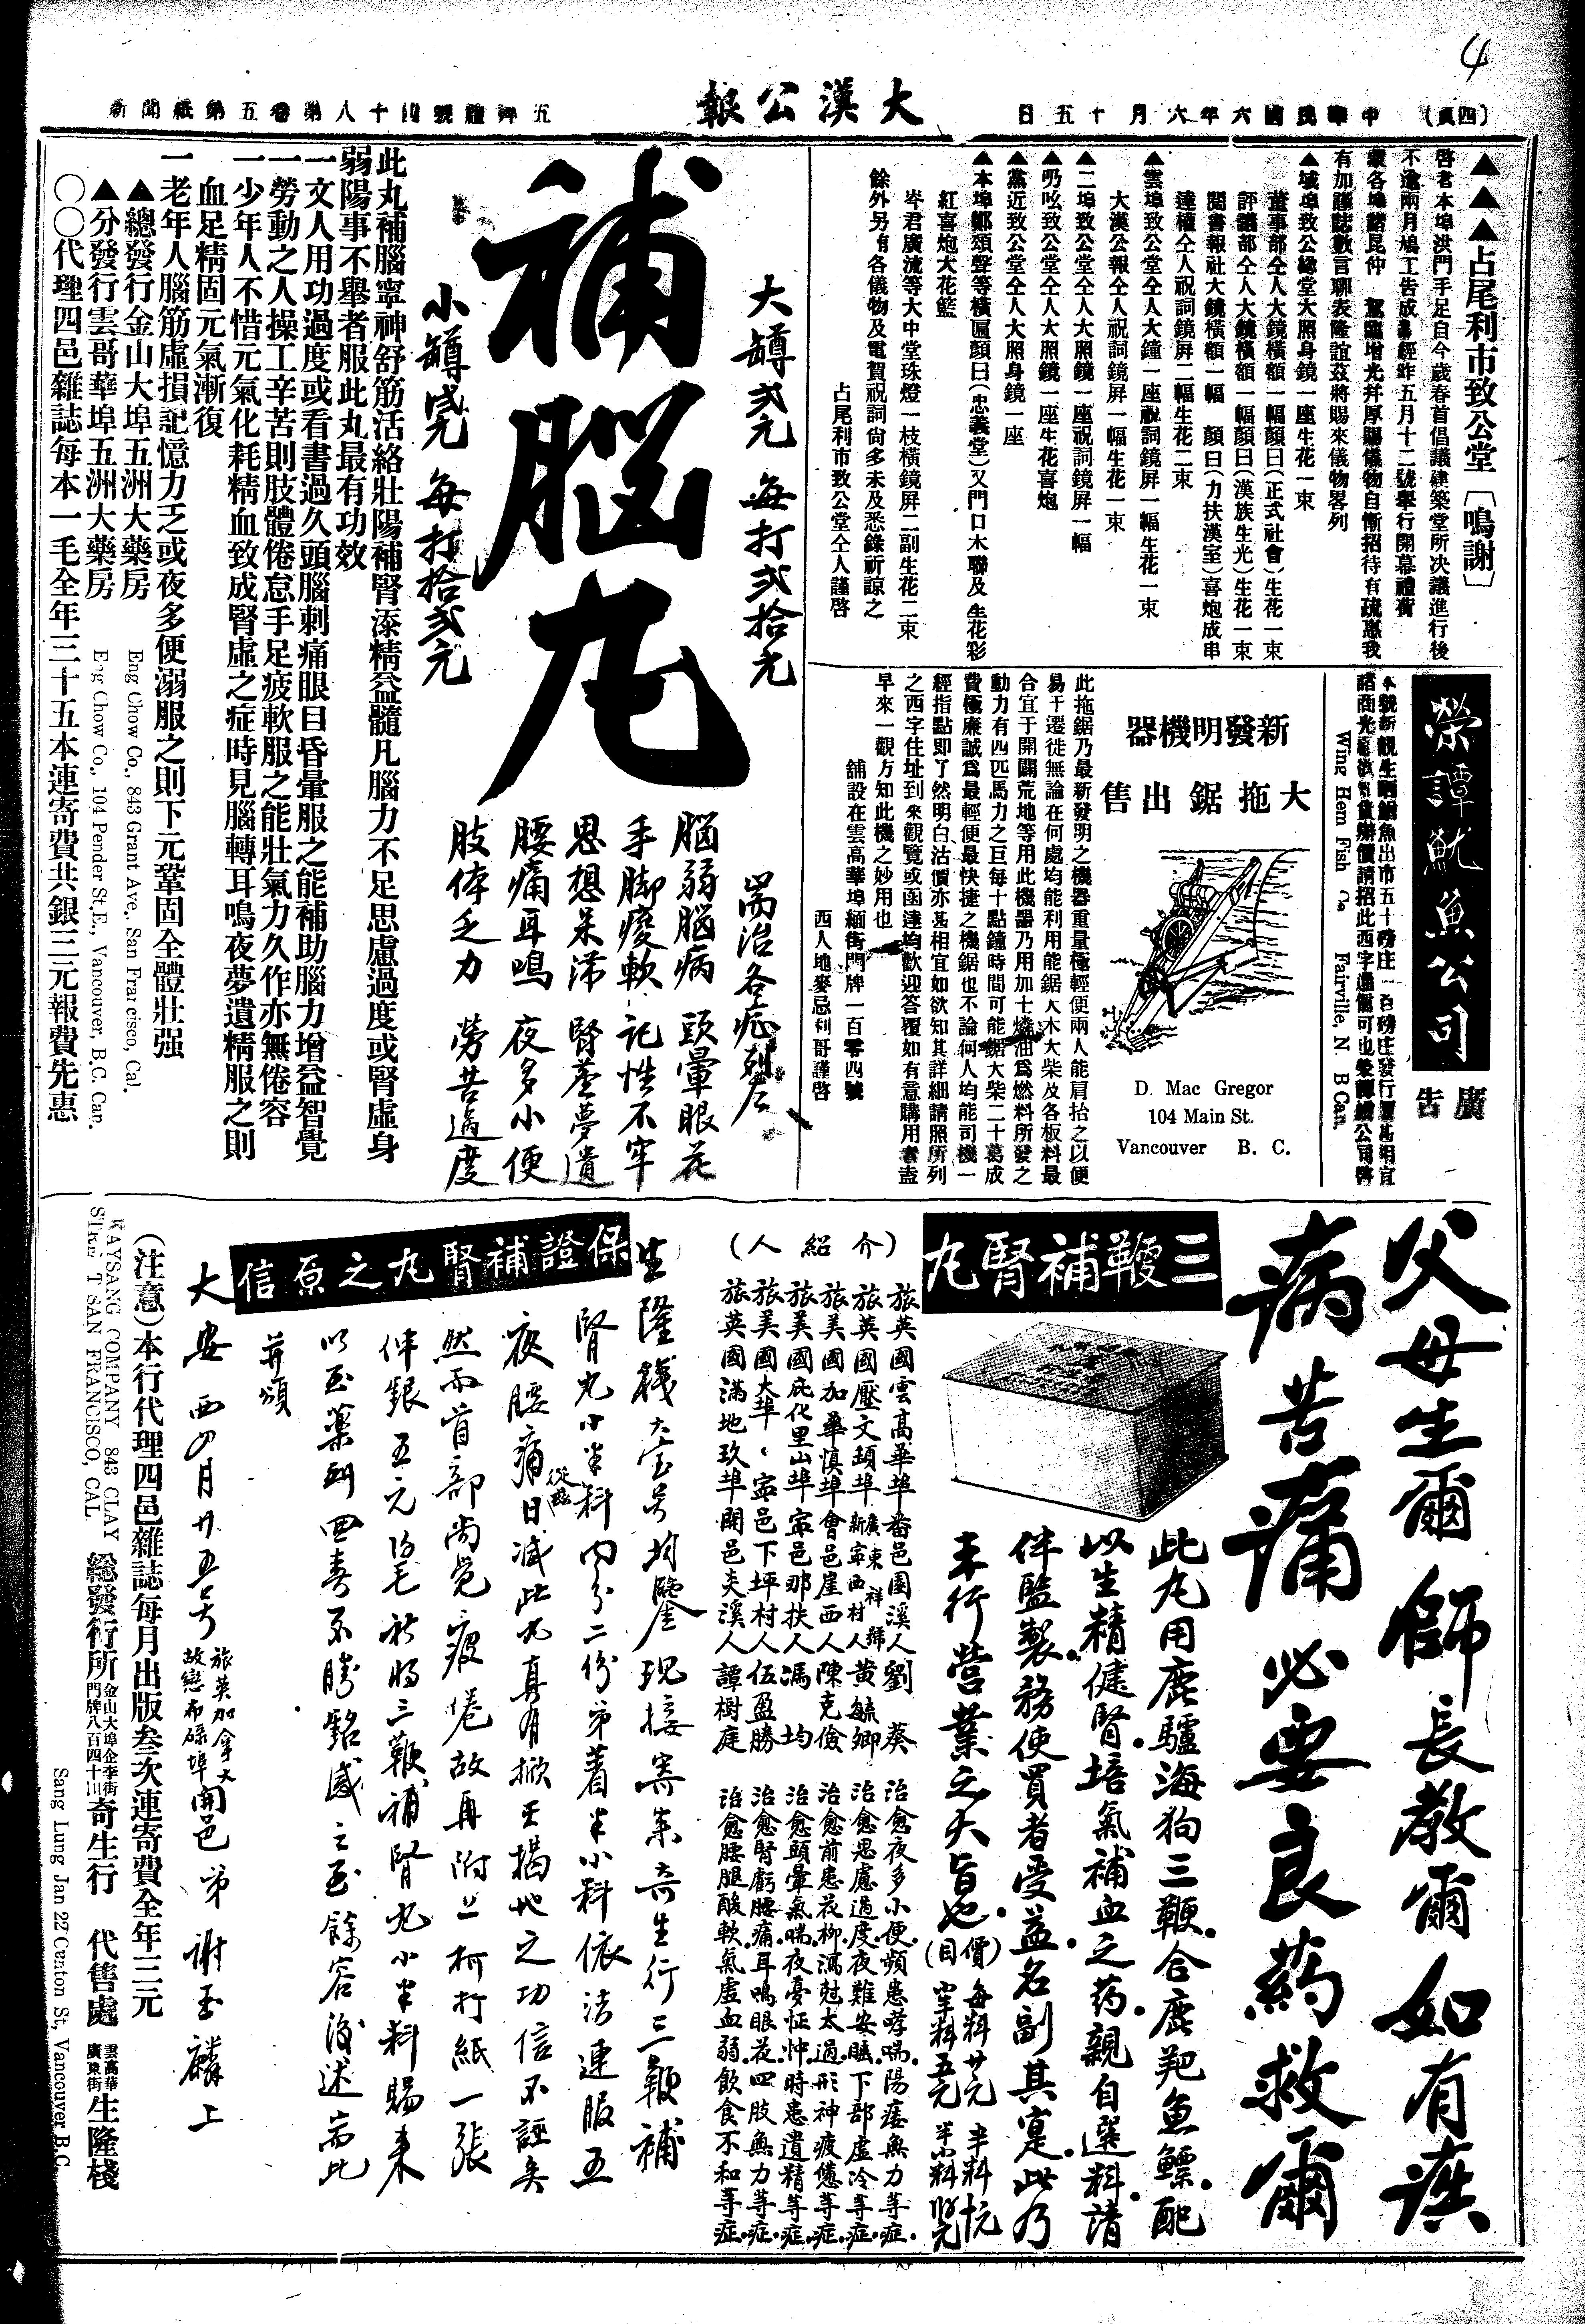 4
(四頁)
中華民國六年六月十五日
大漢公報
新聞紙第五卷第八十四號禮拜五
▲▲▲占尾利市致公堂〔鳴謝〕
啓者本埠洪門手足自今歲春首倡議建築堂所决議進行後
不逾兩月鳩工告成經昨五月十二號舉行開幕禮荷
各埠諸昆仲 駕臨增光幷厚賜儀物自慚招待有疏惠我
有加謹誌數言聊表隆誼茲將賜來儀物畧列
▲域埠致公總堂大照身鏡一座生花一束
董事部仝人大鏡橫額一幅顏曰(正式社會)生花一束
評議部仝人大鏡橫額一幅顏曰(漢族生光)生花一束
閱書報社大鏡橫額一幅 顏曰(力扶漢室)喜炮成串
達權仝人祝詞鏡屏二幅生花二束
▲雲埠致公堂仝人大鐘一座祝詞鏡屏一幅生花一束
大漢公報仝人祝詞鏡屏一幅生花一束
▲二埠致公堂仝人大照鏡一座祝詞鏡屏一幅
▲叨吆致公堂仝人大照鏡一座生花喜炮
▲黨近致公堂仝人大照身鏡一座
▲本埠鄭頌聲等橫匾顏曰(忠義堂)又門口木聯及生花彩
紅喜炮大花籃
岑君廣流等大中堂珠燈一枝橫鏡屏二副生花二束
餘外另有各儀物及電賀祝詞尙多未及悉錄祈諒之
占尾利市致公堂仝人謹啓
榮譚魷魚公司
廣告
Wing Hem Fish Co. Fairville, N. B Can.
新發明機器
大拖鋸出售
D. Mac Gregor
104 Main St.
Vancouver B. C.
此拖鋸乃最新發明之機器重量極輕便兩人能肩抬之以便
易于遷徙無論在何處均能利用能鋸大木大柴及各板料最
合宜于開闢荒地等用此機器乃用加士燐油爲燃料所發之
動力有四匹馬力之巨每十點鐘時間可能鋸大柴二十葛成
費極廉誠爲最輕便最快捷之機鋸也不論何人均能司機一
經指點即了然明白沽價亦甚相宜如欲知其詳細請照所列
之西字住址到來觀覽或函達均歡迎答覆如有意購用者盍
早來一觀方知此機之妙用也
舖設在雲高華埠緬街門牌一百零四號
西人地麥忌利哥謹啓
補腦丸
大罇弍元 每打弍拾元
小罇弍元 每打拾弍元
耑治各症列左
腦弱腦病 頭暈眼花
手脚痠軟 記性不牢
思想呆滯 腎虛夢遺
腰痛耳鳴 夜多小便
肢体乏力 勞苦過度
此丸補腦寧神舒筋活絡壯陽補腎添精益髓凡腦力不足思慮過度或腎虛身
弱陽事不舉者服此丸最有功效
一文人用功過度或看書過久頭腦刺痛眼目昏暈服之能補助腦力增益智覺
一勞動之人操工辛苦則肢體倦怠手足疲軟服之能壯氣力久作亦無倦容
一少年人不惜元氣化耗精血致成腎虛之症時見腦轉耳鳴夜夢遺精服之則
血足精固元氣漸復
一老年人腦筋虛損記憶力乏或夜多便溺服之則下元鞏固全體壯强
▲總發行金山大埠五洲大藥房
Eng Chow Co., 843 Grant Ave., San Francisco, Cal.
▲分發行雲哥華埠五洲大藥房
Eng Chow Co., 104 Pender St. E., Vancouver, B. C. Can.
〇〇代理四邑雜誌每本一毛全年三十五本連寄費共銀三元報費先惠
父母生爾師長教爾如有疾
病苦痛必要良药救爾
三鞭補腎丸
此丸用鹿驢海狗三鞭合鹿羓魚鰾配
以生精健腎培氣補血之药親自選料請
伴監製務使買者受益名副其寔此乃
未行營業之大旨也
(價目)
每料廿元 半料十元
(介紹人)
旅英國雲高華埠番邑園溪人劉葵 治愈夜多小便頻患哮喘陽痿無力等症
旅英國壓文頚埠廣東新寧西村祥歸人黄毓卿 治愈思慮過度夜難安睡下部虛冷等症
旅美國加華慎埠會邑崖西人陳克儉 治愈前患花柳瀉尅太過形神疲憊等症
旅美國庇化里山埠寧邑那扶人馮均 治愈頭暈氣喘夜憂怔忡時患遺精等症
旅美國大埠寧邑下坪村人伍盈勝 治愈腎虧腰痛耳鳴眼花四肢無力等症
旅英國滿地玖埠開邑夾溪人譚樹庭 治愈腰腿酸軟氣虛血弱飲食不和等症
保證補腎丸之原信
生隆棧大宝号均鑒現接寄來奇生行三鞭補
腎丸小半料内分二份弟着半小料依法連服五
夜腰痛從此日减此丸真有掀天揭地之功信不誣矣
然而首部尚覺疲倦故再附上柯打紙一張
伴銀五元伍毛祈将三鞭補腎丸小半料賜來
以至藥到回春不勝銘感之至餘容後述耑此
并頌
大安 西四月廿五号 旅英加拿大故戀布碌埠開邑弟謝玉麟上
(注意)本行代理四邑雜誌每月出版叁次連寄費全年三元
KAYSANG COMPANY 843 CLAY STREET SAN FRANCISCO, CAL.
總發行所金山大埠企李街門牌八百四十三奇生行 代售處雲高華廣東街生隆棧
Sang Lung Jan 22 Canton St, Vancouver B. C.